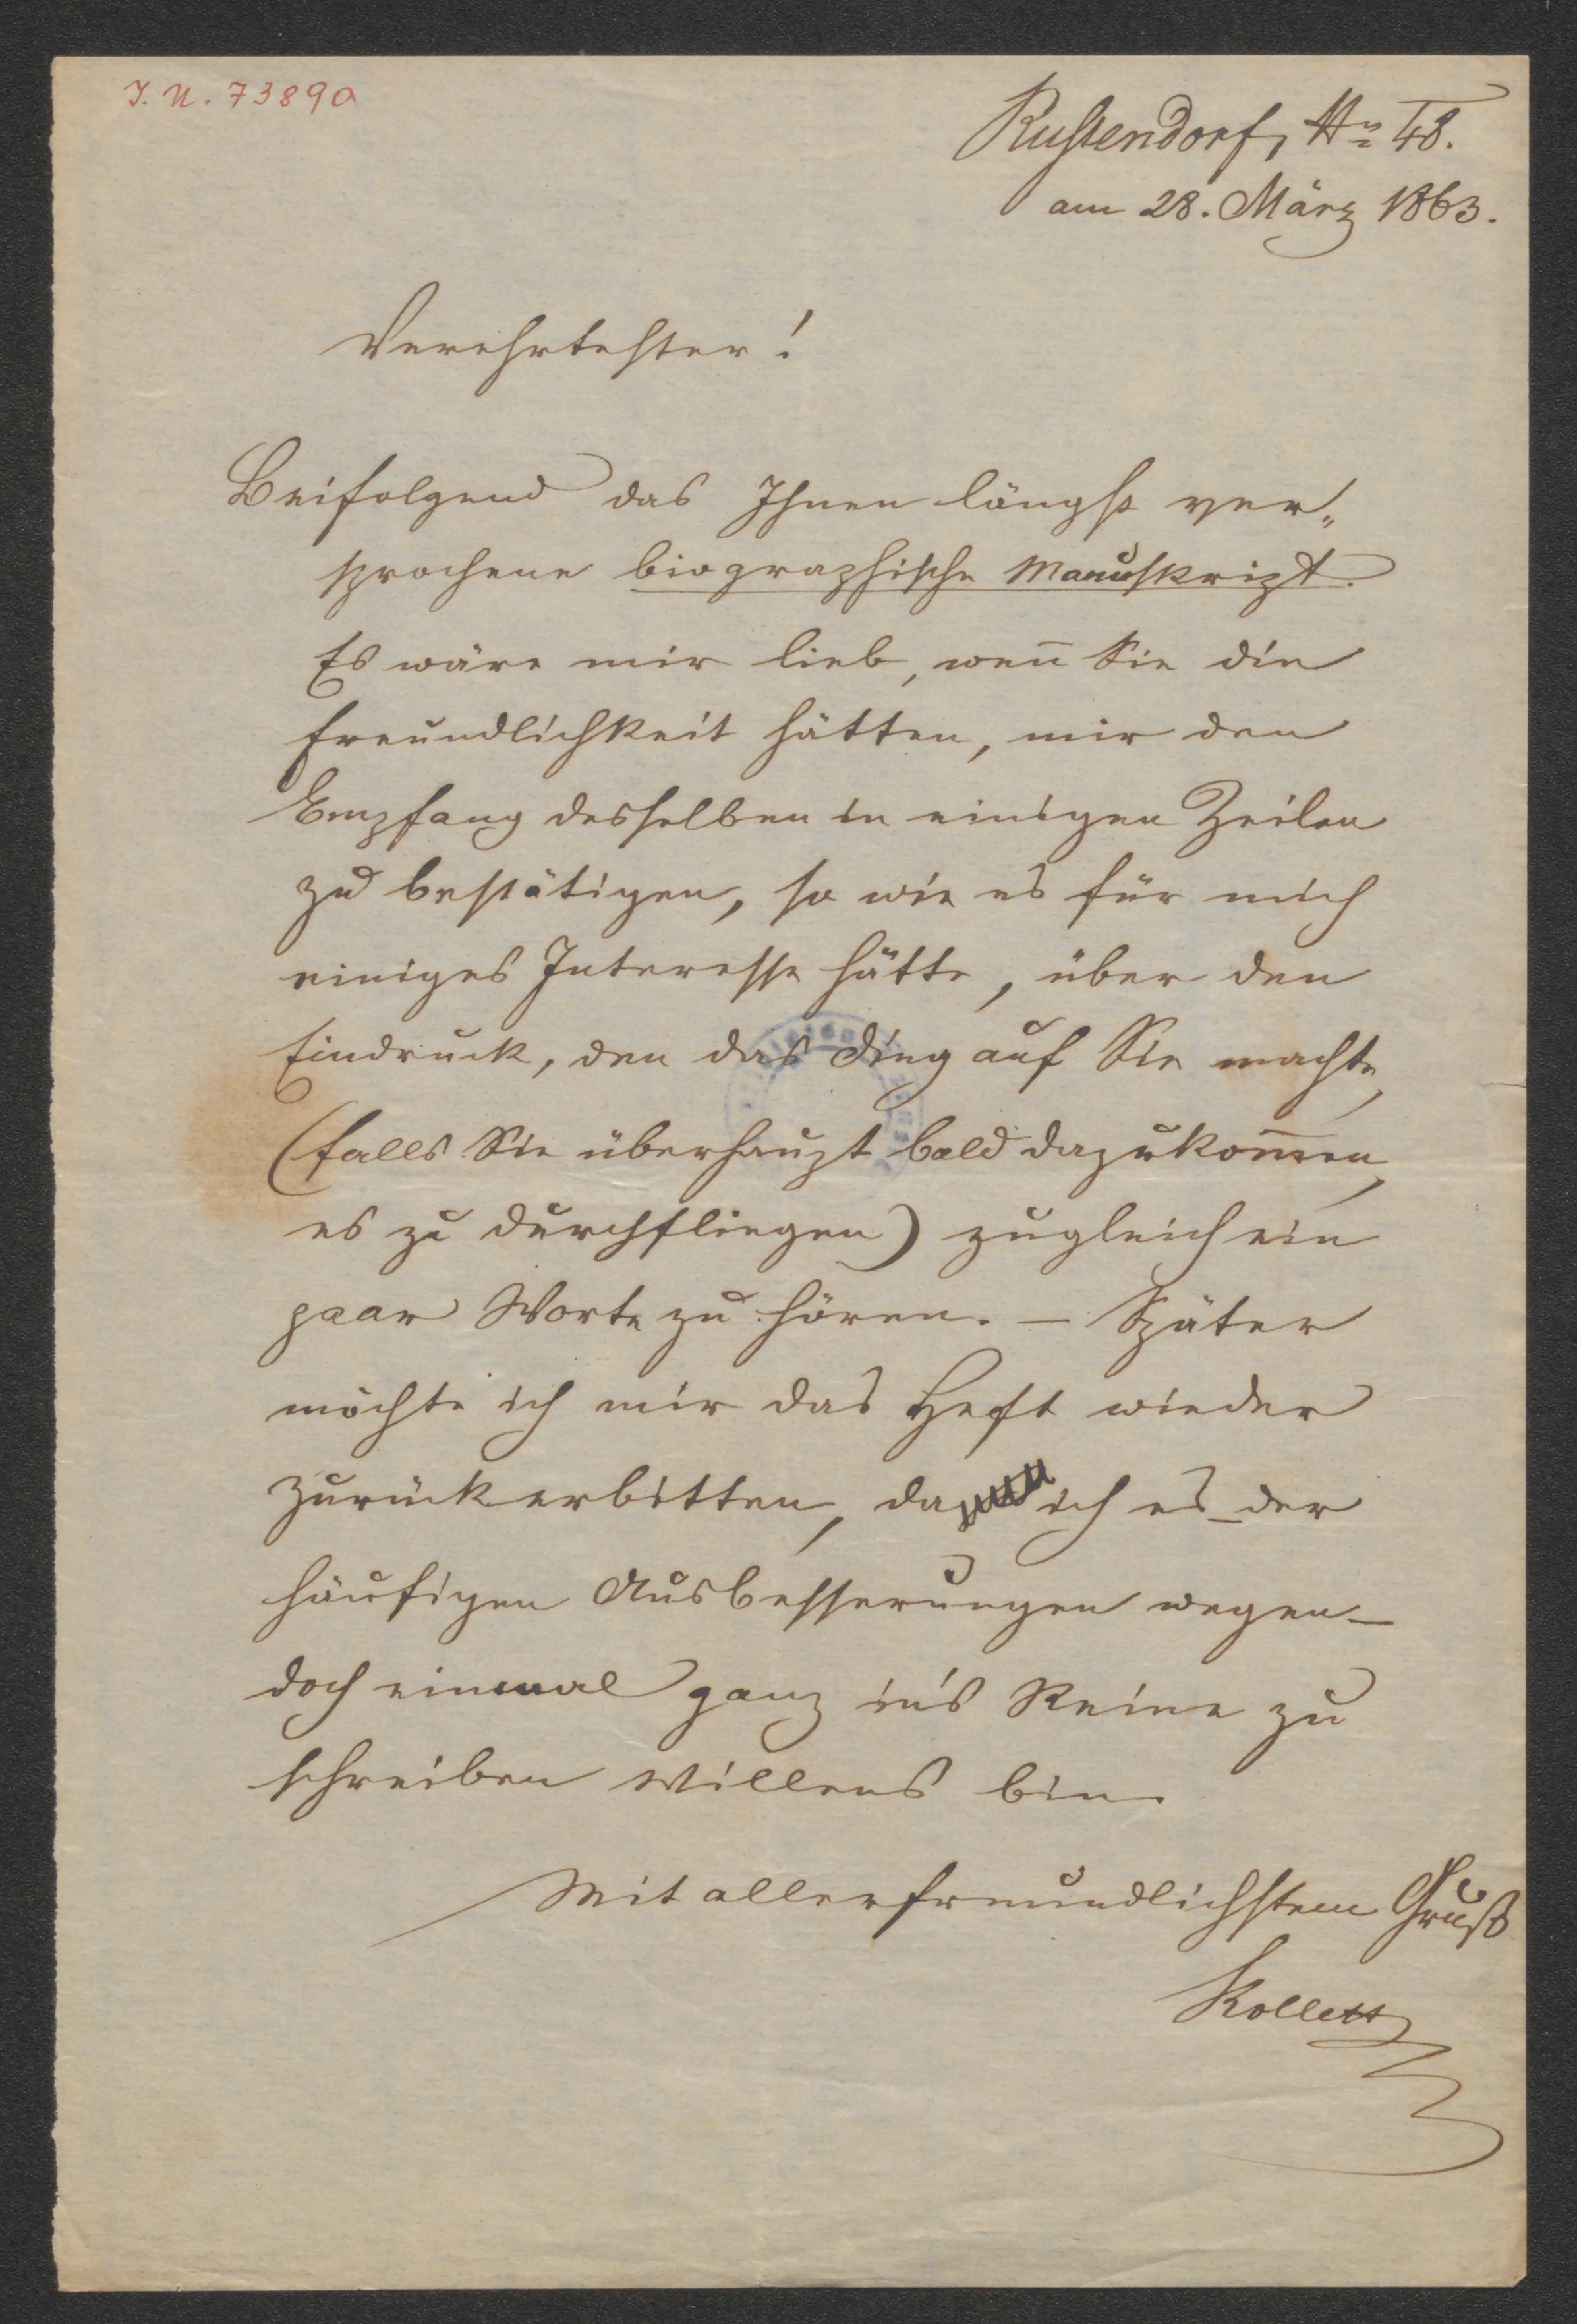 I. N. 73890
Rustendorf, Nro 48.
am 28. März 1863.
Verehrtester!
Beifolgend das Ihnen längst ver„
sprochene biographische Manuskript.
Es wäre mir lieb, wen̄ Sie die
Freundlichkeit hätten, mir den
Empfang desselben in einigen Zeilen
zu bestätigen, so wie es für mich
einiges Interesse hätte, über den
Eindruck, den das Ding auf Sie machte,
(falls Sie überhaupt bald dazukom̄en,
es zu durchfliegen) zugleich ein
paar Worte zu hören. — Später
möchte ich mir das Heft wieder
zurückerbitten, da ich es – der
häufigen Ausbesserungen wegen –
doch einmal ganz in's Reine zu
schreiben Willens bin.
Mit allerfreundlichstem Gruß
Rollett